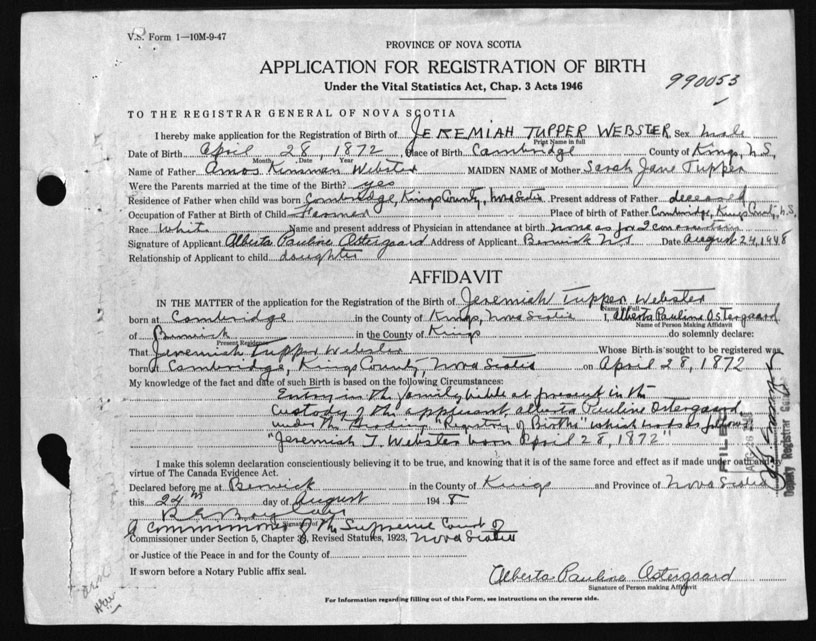 V.S. Form 1—10M-9-47
PROVINCE OF NOVA SCOTIA
APPLICATION FOR REGISTRATION OF BIRTH
Under the Vital Statistics Act, Chap. 3 Acts 1946
990053
TO THE REGISTRAR GENERAL OF NOVA SCOTIA
I hereby make application for the Registration of Birth of JEREMIAH TUPPER WEBSTER Sex Male
Print Name in full
Date of Birth April 28 1872 Place of Birth Cambridge County of Kings, N.S.
Month Day Year
Name of Father Amos Kinsman Webster MAIDEN NAME of Mother Sarah Jane Tupper
Were the Parents married at the time of the Birth? yes
Residence of Father when child was born Cambridge, Kings County, Nova Scotia Present address of Father deceased
Occupation of Father at Birth of Child Farmer Place of birth of Father Cambridge, Kings County, N.S.
Race White Name and present address of Physician in attendance at birth none as far as I can
Signature of Applicant Alberta Pauline Ostergaard Address of Applicant Berwick N.S. Date August 24, 1948
Relationship of Applicant to child daughter
AFFIDAVIT
IN THE MATTER of the application for the Registration of the Birth of Jeremiah Tupper Webster
Name in Full
born at Cambridge in the County of Kings, Nova Scotia I, Alberta Pauline Ostergaard
Name of Person Making Affidavit
of Berwick in the County of Kings do solemnly declare:
Present Residence
That Jeremiah Tupper Webster Whose Birth is sought to be registered was
born at Cambridge, Kings County, Nova Scotia on April 28, 1872
My knowledge of the fact and date of such Birth is based on the following Circumstances:
Entry in the family bible at present in the
custody of the applicant, Alberta Pauline Ostergaard,
under the heading "Registry of Births" which reads as follows
"Jeremiah T. Webster born April 28, 1872"
FILED
Deputy Registrar General
I make this solemn declaration conscientiously believing it to be true, and knowing that it is of the same force and effect as if made under oath and by
virtue of The Canada Evidence Act.
Declared before me at Berwick in the County of Kings and Province of Nova Scotia
this 24th day of August 1948
Signature of
A Commissioner of the Supreme Court of
Commissioner under Section 5, Chapter 38, Revised Statutes, 1923, Nova Scotia
or Justice of the Peace in and for the County of
If sworn before a Notary Public affix seal.
Alberta Pauline Ostergaard
Signature of Person making Affidavit
For Information regarding filling out of this Form, see instructions on the reverse side.